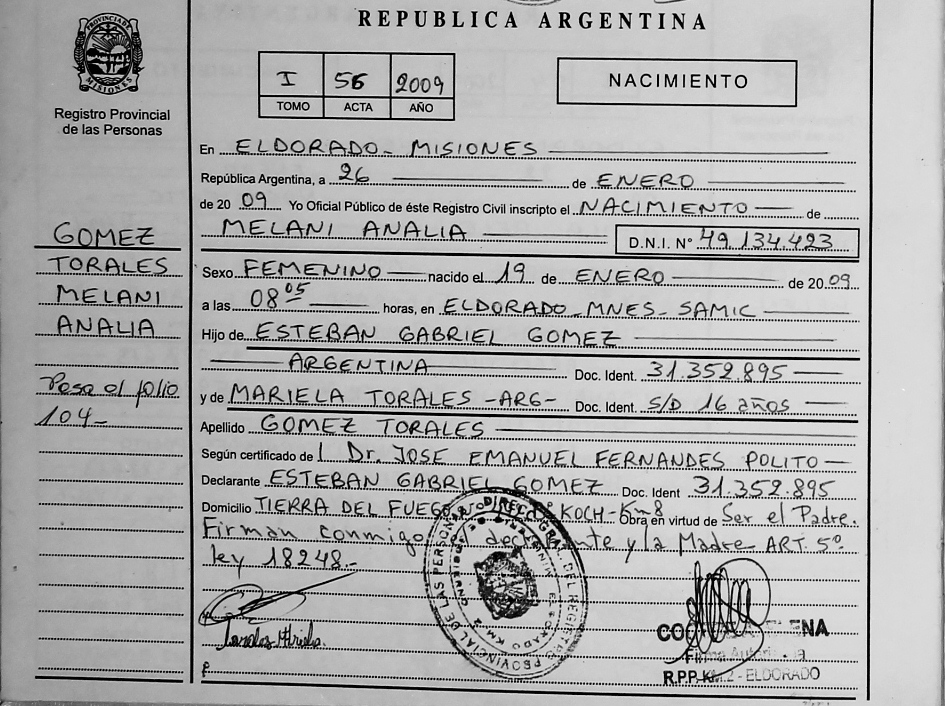 REPUBLICA ARGENTINA
PROVINCIA DE MISIONES
Registro Provincial
de las Personas
I 56 2009
TOMO ACTA AÑO
NACIMIENTO
En ELDORADO - MISIONES
República Argentina, a 26 de ENERO
de 20 09 Yo Oficial Público de éste Registro Civil inscripto el NACIMIENTO de
MELANI ANALIA D.N.I. Nº 49.134.423
Sexo FEMENINO nacido el 19 de ENERO de 20 09
a las 08 05 horas, en ELDORADO - MNES - SAMIC
Hijo de ESTEBAN GABRIEL GOMEZ
ARGENTINA Doc. Ident. 31.352.895
y de MARIELA TORALES -ARG- Doc. Ident. S/D 16 años
Apellido GOMEZ TORALES
Según certificado de Dr. JOSE EMANUEL FERNANDES POLITO
Declarante ESTEBAN GABRIEL GOMEZ Doc. Ident 31.352.895
Domicilio TIERRA DEL FUEGO KOCH - Km 8 Obra en virtud de Ser el Padre.
Firman conmigo y la Madre ART. 5º
ley 18248.-
GOMEZ
TORALES
MELANI
ANALIA
Pasa al folio
104-
PROVINCIAL DE LAS PERSONAS
R.P.P. KM. 2 - ELDORADO